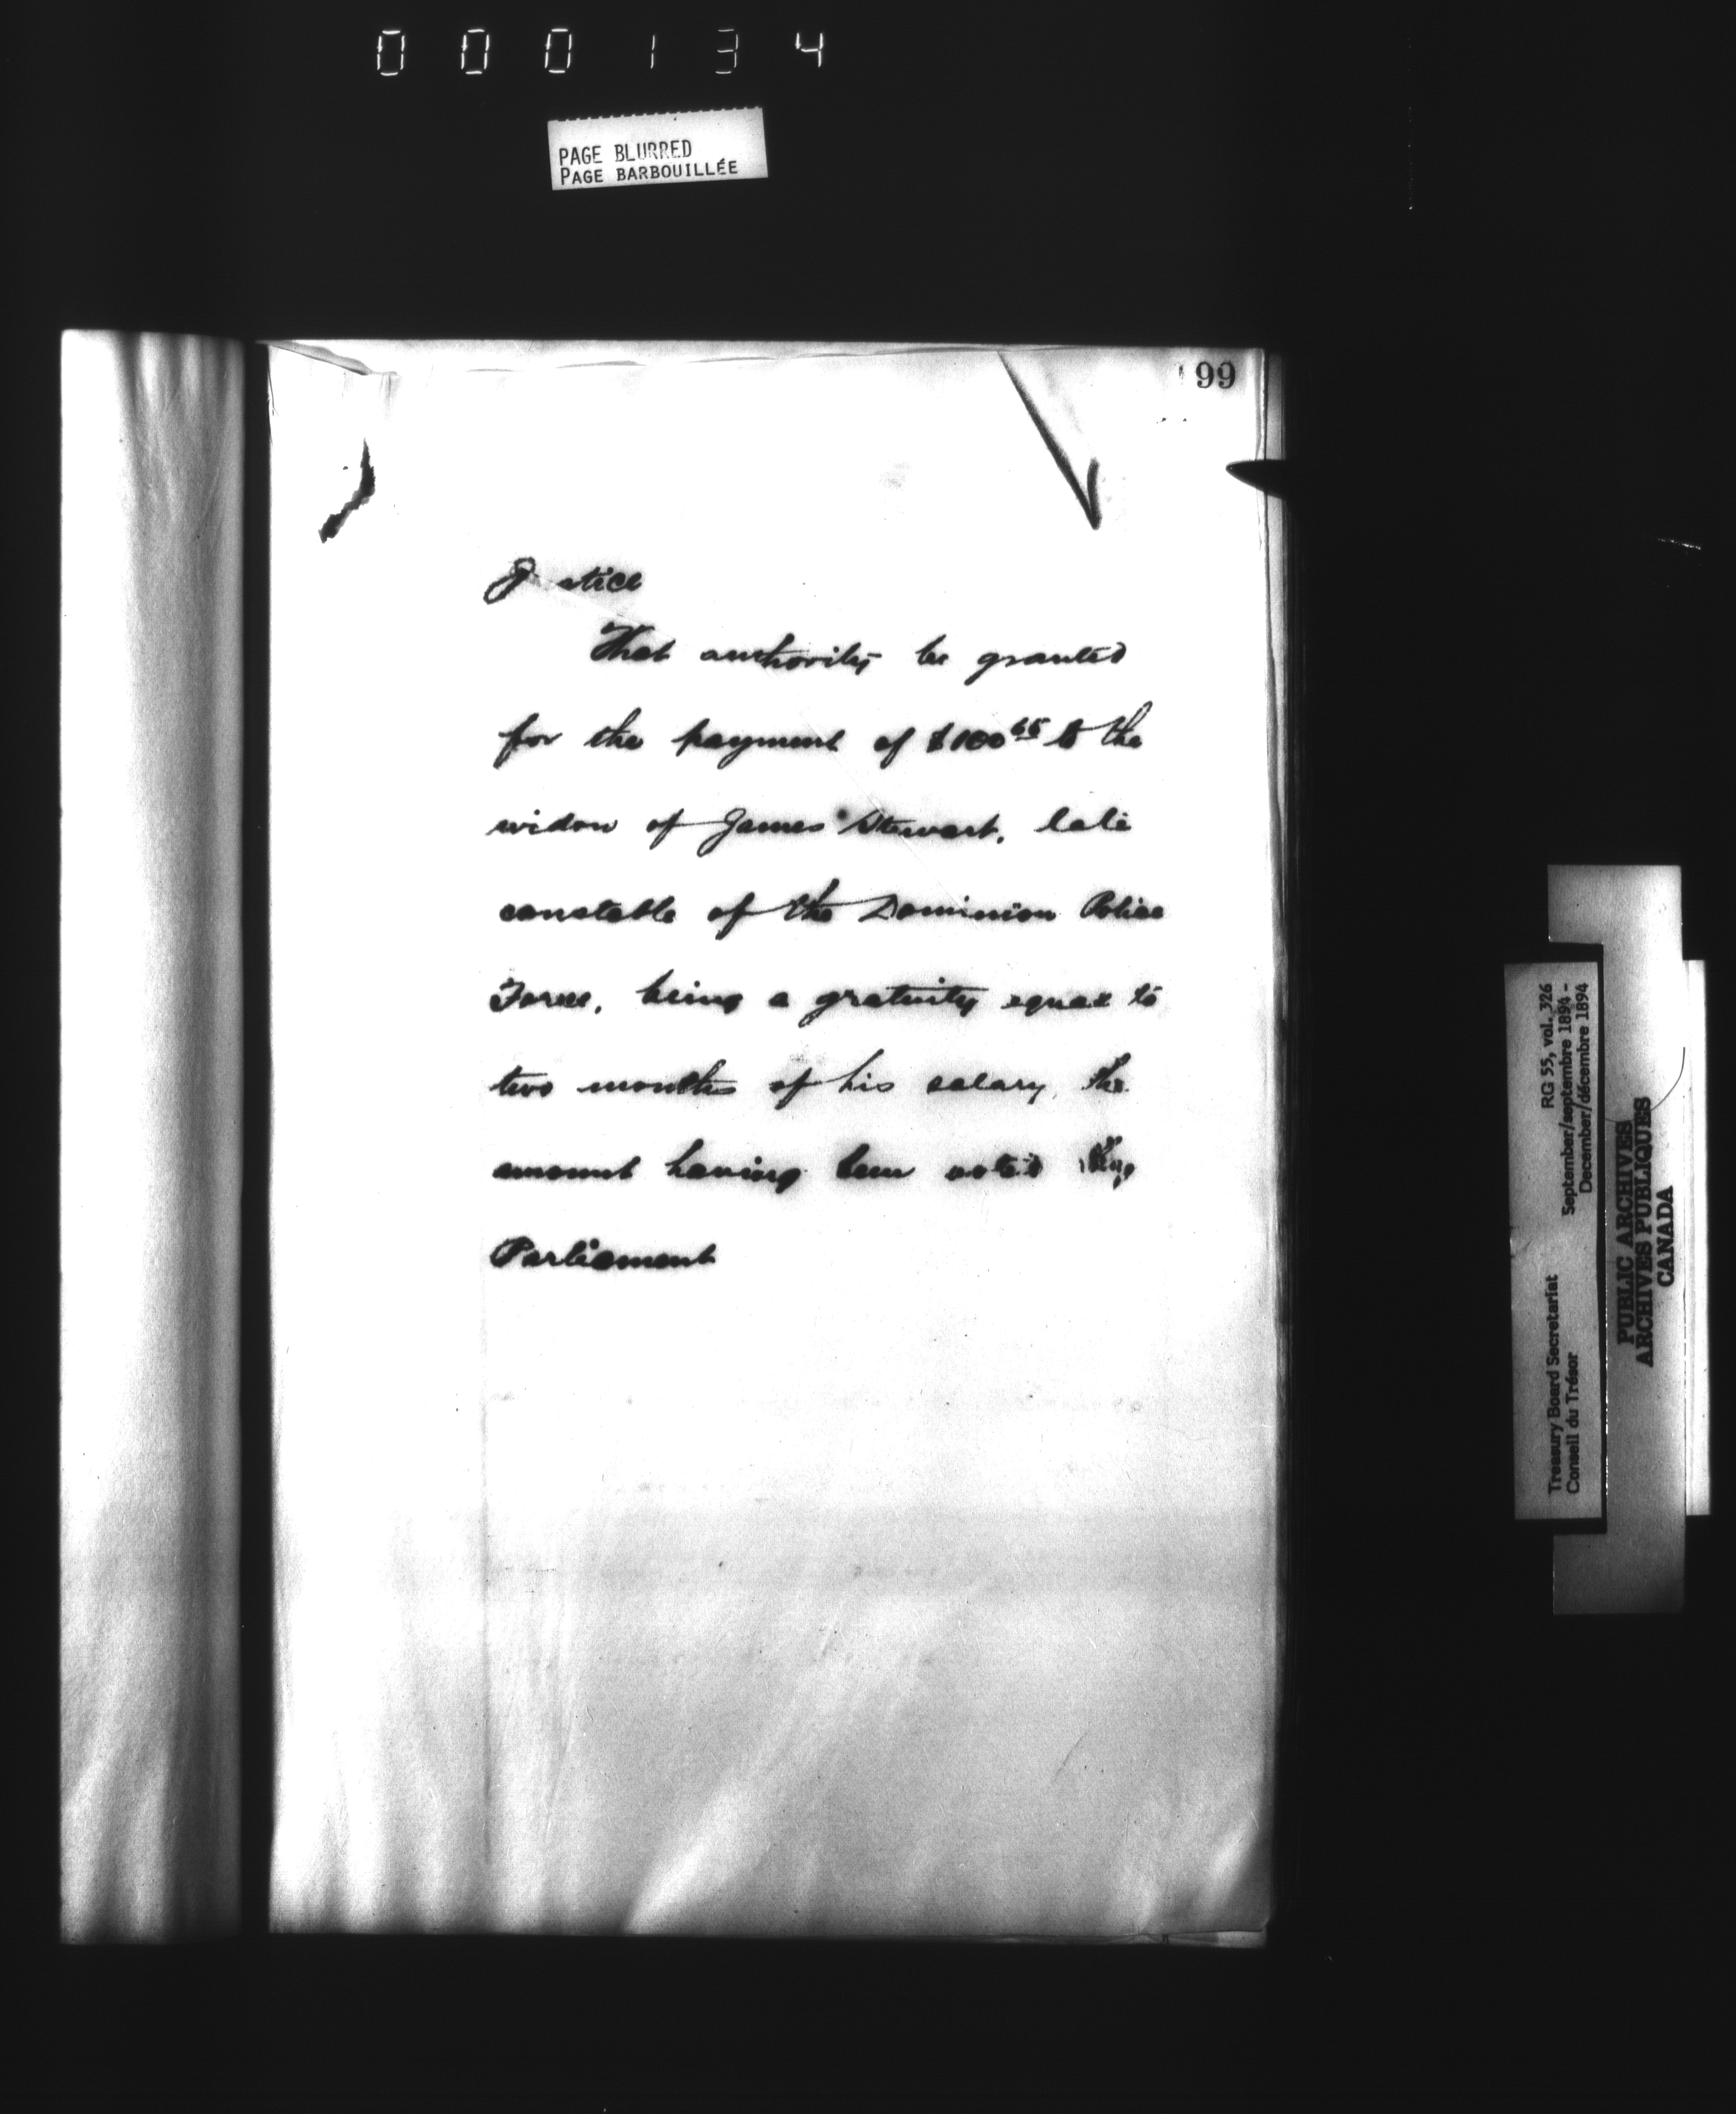 000134
PAGE BLURRED
PAGE BARBOUILLÉE
99
Justice
That authority be granted
for the payment of $100 to the
widow of James Stewart, late
constable of the Dominion Police
Force, being a gratuity equal to
two months of his salary, the
amount having been voted by
Parliament
Treasury Board Secretariat RG 55, vol. 326
Conseil du Trésor September/septembre 1894 -
December/décembre 1894
PUBLIC ARCHIVES
ARCHIVES PUBLIQUES
CANADA